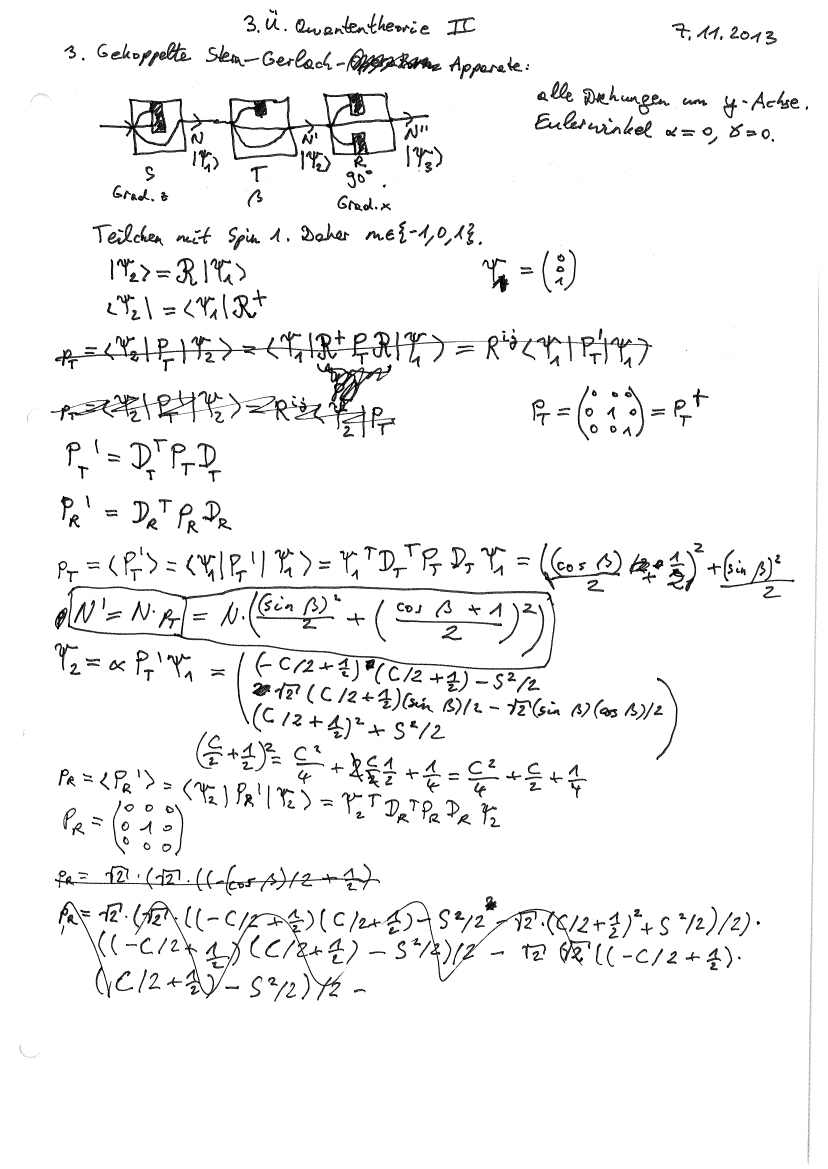 3. Ü. Quantentheorie II
7.11.2013
3. Gekoppelte Stern-Gerlach- Apparate:
alle Drehungen um y-Achse.
Eulerwinkel α=0, γ=0.
N N' N''
|Ψ₁⟩ |Ψ₂⟩ |Ψ₃⟩
S T R
Grad. z β 90°
Grad. x
Teilchen mit Spin 1. Daher m∈{-1,0,1}.
|Ψ₂⟩ = R|Ψ₁⟩ Ψ₁ = (0 0 1)
⟨Ψ₂| = ⟨Ψ₁|R⁺
p_T = ⟨Ψ₂|P_T|Ψ₂⟩ = ⟨Ψ₁|R⁺ P_T R|Ψ₁⟩ = R^ij ⟨Ψ₁|P_T'|Ψ₁⟩
P_T = (0 0 0 / 0 1 0 / 0 0 1) = P_T⁺
P_T' = D_T^T P_T D_T
P_R' = D_R^T P_R D_R
p_T = ⟨P_T'⟩ = ⟨Ψ₁|P_T'|Ψ₁⟩ = Ψ₁^T D_T^T P_T D_T Ψ₁ = ((cos β)/2 + 1/2)² + (sin β)²/2
N' = N·p_T = N·((sin β)²/2 + ((cos β + 1)/2)²)
Ψ₂ = α P_T' Ψ₁ = ((-C/2 + 1/2)(C/2 + 1/2) - S²/2
√2 (C/2 + 1/2)(sin β)/2 - √2 (sin β)(cos β)/2
(C/2 + 1/2)² + S²/2)
(C/2 + 1/2)² = C²/4 + 2 C/2 1/2 + 1/4 = C²/4 + C/2 + 1/4
p_R = ⟨P_R'⟩ = ⟨Ψ₂|P_R'|Ψ₂⟩ = Ψ₂^T D_R^T P_R D_R Ψ₂
P_R = (0 0 0 / 0 1 0 / 0 0 0)
p_R = √2·(√2·((-(cos β)/2 + 1/2)
p_R = √2·(√2·((-C/2 + 1/2)(C/2 + 1/2) - S²/2 - √2·(C/2 + 1/2)² + S²/2)/2)·
((-C/2 + 1/2)(C/2 + 1/2) - S²/2)/2 - √2 (√2 ((-C/2 + 1/2)·
(C/2 + 1/2) - S²/2)/2 -